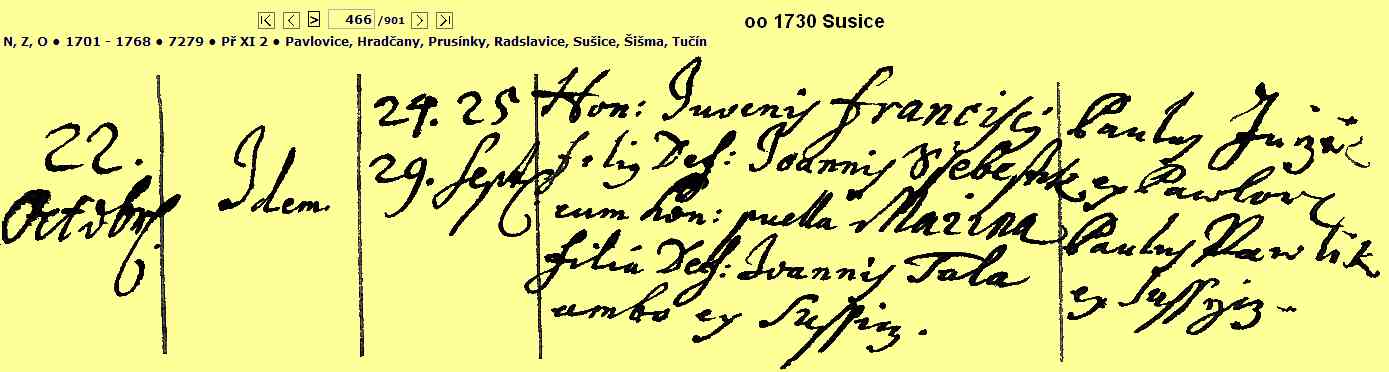 466 /901
oo 1730 Susice
N, Z, O ● 1701 - 1768 ● 7279 ● Př XI 2 ● Pavlovice, Hradčany, Prusínky, Radslavice, Sušice, Šišma, Tučín
22.
Octobr.
Idem.
24. 25
29. Sept.
Hon: Juvenis Francisci
filiy Def: Joannis
cum hon: puella Marina
filia Def: Joannis Tala
ambo ex Sussiz.
Paulus
ex Pawlov
Paulus Pawlik
ex Sussyiz